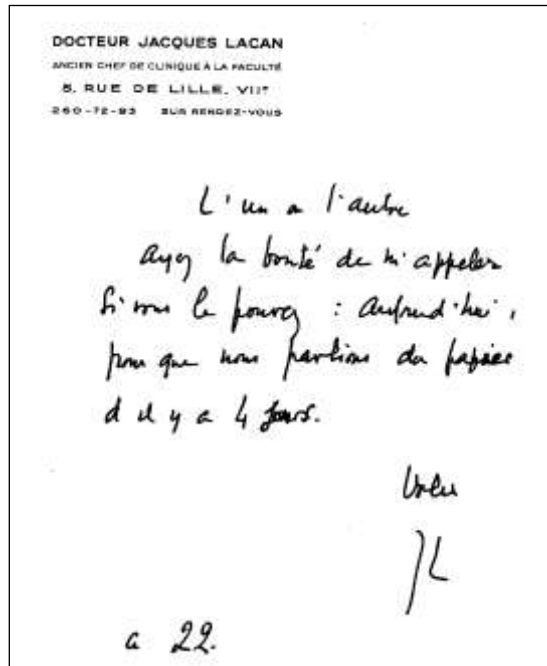 DOCTEUR JACQUES LACAN
ANCIEN CHEF DE CLINIQUE A LA FACULTÉ
5, RUE DE LILLE, VIIe
260-72-93 SUR RENDEZ-VOUS
L'un ou l'autre
ayez la bonté de m'appeler
si vous le pouvez : aujourd'hui,
pour que nous parlions du papier
d'il y a 4 jours.
Votre
JL
22.